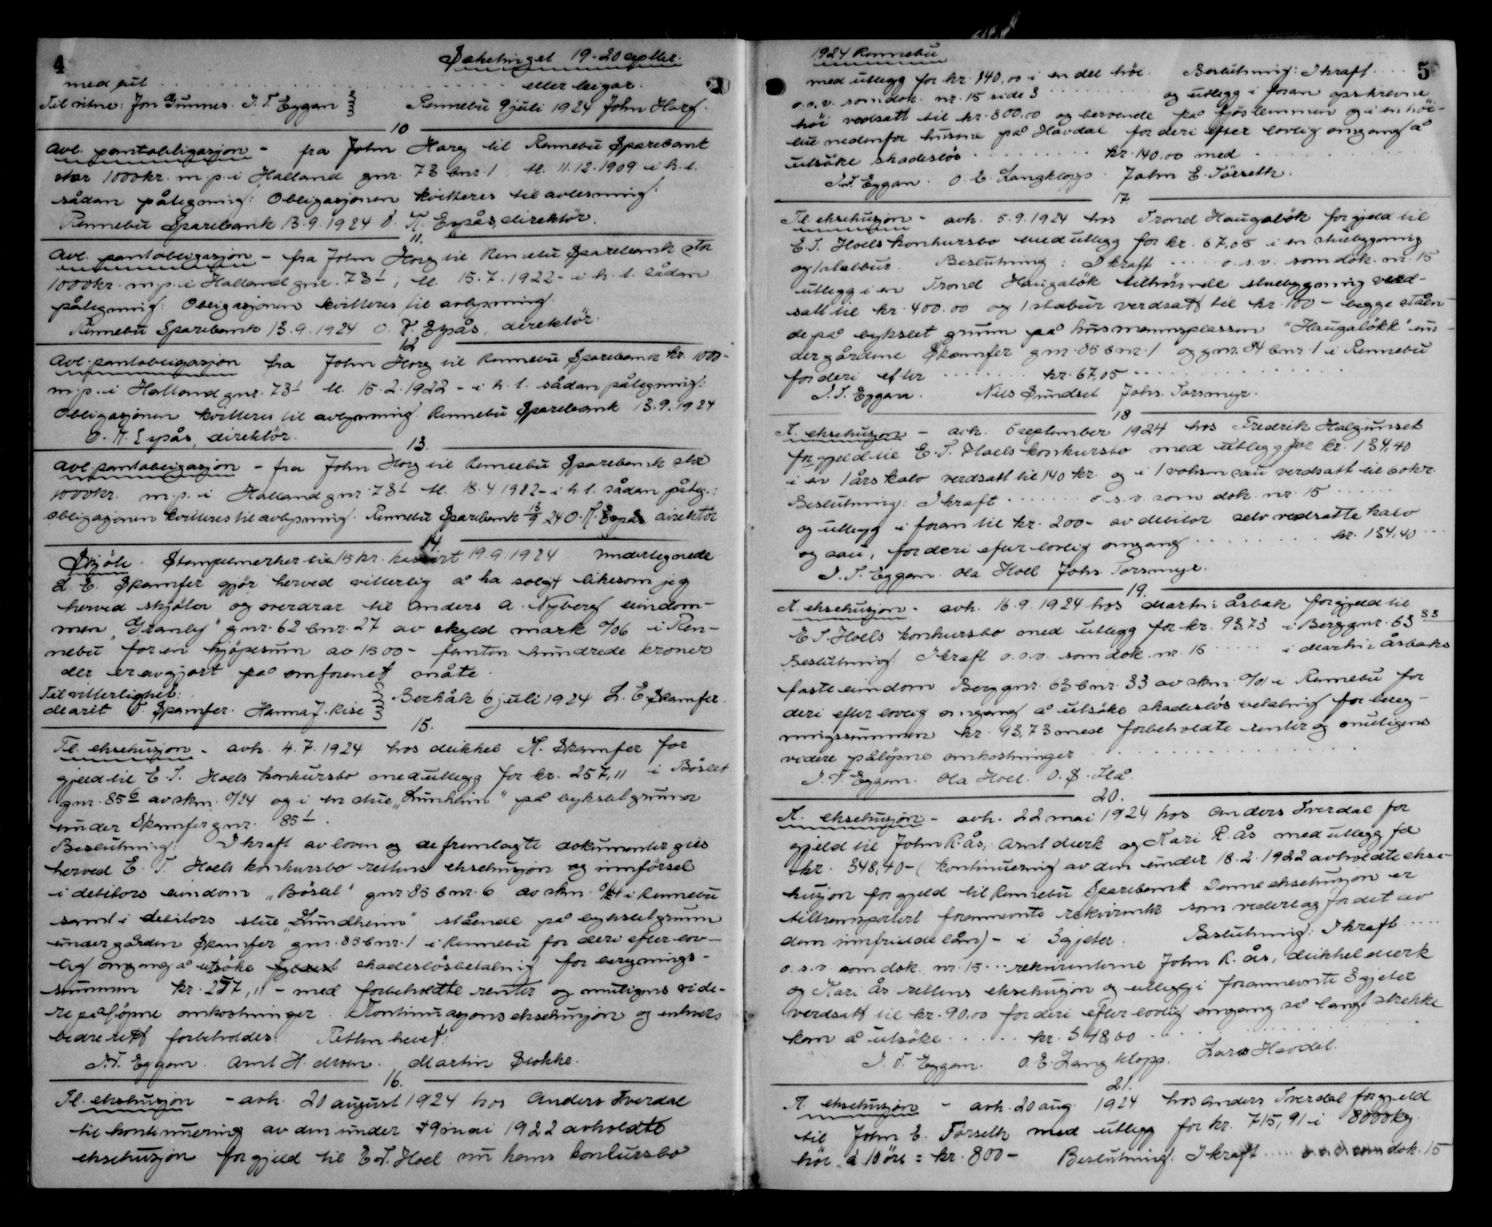 4
Saketinget 19-20 septbr.
med gul . . . . . . . . . . . . . . . eller beigar.
Til vitne: Jon Gunnes. I. T. Eggan Rennebu 9 juli 1924 John Horg.
10
Avl. pantobligasjon - fra John Horg til Rennebu Sparebank
stor 1000 kr. m.p. i Halland gnr. 73 bnr. 1 tl. 11.12.1909 i h. t.
sådan påtegning: Obligasjonen kvitteres til avlesning.
Rennebu Sparebank 13.9.1924 O. K. Espås, direktör.
11.
Avl. pantobligasjon - fra John Horg til Rennebu Sparebank stor
1000 kr. m.p. i Halland gnr. 73/1, tl. 15.7.1922 - i h. t. sådan
påtegning: Obligasjonen kvitteres til avlysning.
Rennebu Sparebank 13.9.1924 O. K. Espås, direktör.
12
Avl. pantobligasjon fra John Horg til Rennebu Sparebank kr. 1000-
m.p. i Halland gnr. 73/1 tl. 15.2.1922 - i h. t. sådan påtegning:
Obligasjonen kvitteres til avlysning. Rennebu Sparebank 13.9.1924
O. K. Espås, direktör.
13.
Avl. pantobligasjon - fra John Horg til Rennebu Sparebank stor
1000 kr. m.p. i Halland gnr. 73/1 tl. 18.4 1922 - i h. t. sådan påteg.:
obligasjonen kvitteres til avlysning. Rennebu Sparebank 13/9 24 O. K. Espås direktör
14.
Skjöte. Stempelmerker til 15 kr. kassert 19.9.1924. Undertegnede
L. E. Skamfer gjør herved vitterlig å ha solgt likesom jeg
herved skjöter og overdrar til Anders A. Nyberg eiendom-
men "Granly" gnr. 62 bnr. 27 av skyld mark 0/06 i Ren-
nebu for en kjöpesum av 1500 - femten hundrede kroner
der er avgjort på omforenet måte.
Til vitterlighet: Berkåk 6 juli 1924 L. E. Skamfer.
Marit O Skamfer. Hanna J. Rise
15.
Tl. eksekusjon - avh. 4.7.1924 hos Mikkel K. Skamfer for
gjeld til E. T. Hoels konkursbo med utlegg for kr. 257,11 i Böslet
gnr. 85/6 av skm. 0/24 og i en stue "Lundheim" på bykselgrunn
under Skamfer gnr. 85/1.
Beslutning: I kraft av loven og de fremlagte dokumenter gies
herved E. T. Hoels konkursbo rettens eksekusjon og innförsel
i debitors eiendom "Böslet" gnr 85 bnr. 6 av skm. 0/24 i Rennebu
samt i debitors stue "Lundheim" stående på bykselgrunn
under gården Skamfer gnr. 85 bnr. 1 i Rennebu for deri efter lov-
lig omgang å utsöke skadeslösbetalnig for beregnings-
summen kr. 257,11 - med forbeholdte renter og muligens vide-
re påløpne omkostninger. Kontinuasjonseksekusjon og enhver
bedre rett forbeholdes. Retten hevet.
I. T. Eggan. Arnt H. Moen. Martin Stokke.
16.
Tl. eksekusjon - avh. 20 august 1924 hos Anders Tverdal
til kontinuering av den under 19 mai 1922 avholdte
eksekusjon for gjeld til E. T. Hoel nu hans konkursbo
5
1924 Rennebu
med utlegg for kr. 140,00 i en del höi. Beslutning: I kraft . . .
o.s.v. som dok. nr. 15 side 3 . . . . . . . . og utlegg i foran opskrevne
höi verdsatt til kr. 800,00 og beroende på fjöslemmen og i en höi-
bu nedenfor husene på Havdal for deri efter lovlig omgang å
utsöke skadeslös . . . . . . . . . kr. 140,00 med . . . . . . . . .
I. T. Eggan. O. E. Langklopp. John E. Törseth.
17
Tl. eksekusjon - avh. 5.9.1924 hos Trond Haugalök for gjeld til
E. T. Hoels konkursbo med utlegg for kr. 67,05 i en stuebygning
og 1 stabbur. Beslutning: I kraft . . . . o.s.v. som dok. nr. 15
utlegg i en Trond Haugalök tilhörende stuebygning verd-
satt til kr. 400.00 og 1 stabur verdsatt til kr. 100 - begge ståen-
de på bykslet grunn på husmannsplassen "Haugalökk" un-
der gårdene Skamfer gnr. 85 bnr. 1 og gnr. 84 bnr. 1 i Rennebu
for deri efter . . . . . . . . kr. 67,05 . . . . . . . . . . .
I. T. Eggan. Nils Sundset Johs. Torsmyr.
18
Tl. eksekusjon - avh. 5 september 1924 hos Fredrik Halgunset
for gjeld til E. T. Hoels konkursbo med utlegg for kr. 134,40
i en 1 års kalv verdsatt til 140 kr. og i 1 voksen sau verdsatt til 60 kr.
Beslutning: I kraft . . . . . . . o.s.v. som dok. nr. 15 . . . . .
og utlegg i foran til kr. 200 - av debitor selv verdsatte kalv
og sau, for deri efter lovlig omgang . . . . . . . . . kr. 134,40 . . .
I. T. Eggan. Ola Hoel Johs. Torsmyr.
19.
Tl. eksekusjon - avh. 16.9.1924 hos Martin Åsbak for gjeld til
E. T. Hoels konkursbo med utlegg for kr. 93,73 i Berg gnr. 63 33
Beslutning I kraft o.s.v. som dok. nr. 15 . . . . . i Martin Åsbaks
faste eiendom Berg gnr. 63 bnr. 33 av skm. 0/01 i Rennebu for
deri efter lovlig omgang å utsöke skadeslös betaling for bereg-
ningssummen kr. 93,73 med forbeholdte renter og muligens
videre påløpne omkostninger . . . . . . . . . . . . .
I. T. Eggan. Ola Hoel. O. S. Flå.
20.
Tl. eksekusjon - avh. 22 mai 1924 hos Anders Tverdal for
gjeld til John R. Ås, Arnt Merk og Kari R. Ås med utlegg for
kr. 348,40 - (kontinuering av den under 18.2.1922 avholdte ekse-
kusjon for gjeld til Rennebu Sparebank. Denne eksekusjon er
transportert forannevnte rekvirenter som vederlag for det av
dem innfridde lån) - i 3 gjeter. Beslutning: I kraft . . . .
o.s.v. som dok. nr. 15 . . . rekvirentene John R. Ås, Mikkel Merk
og Kari Ås rettens eksekusjon og utlegg i forannevnte 3 gjeter
verdsatt til kr. 90.00 for deri efter lovlig omgang så langt strekke
kan å utsöke . . . . . kr. 348,60 . . . . . . . . . . .
I. T. Eggan. O. E. Langklopp. Lars Havdal.
21.
Tl. eksekusjon - avh. 20 aug. 1924 hos Anders Tverdal for gjeld
til John E. Törseth med utlegg for kr. 715,91 i 8000 kg.
höi á 10 öre = kr. 800 - Beslutning: I kraft . . . . o.s.v. som dok. 15